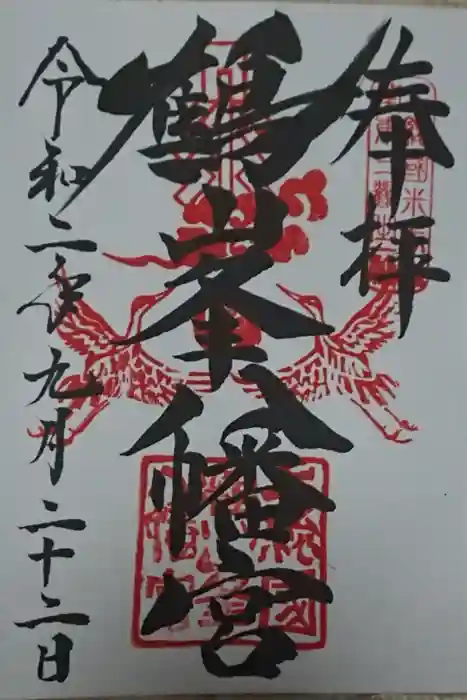 奉拝
鶴峯八幡宮
令和二年九月二十二日